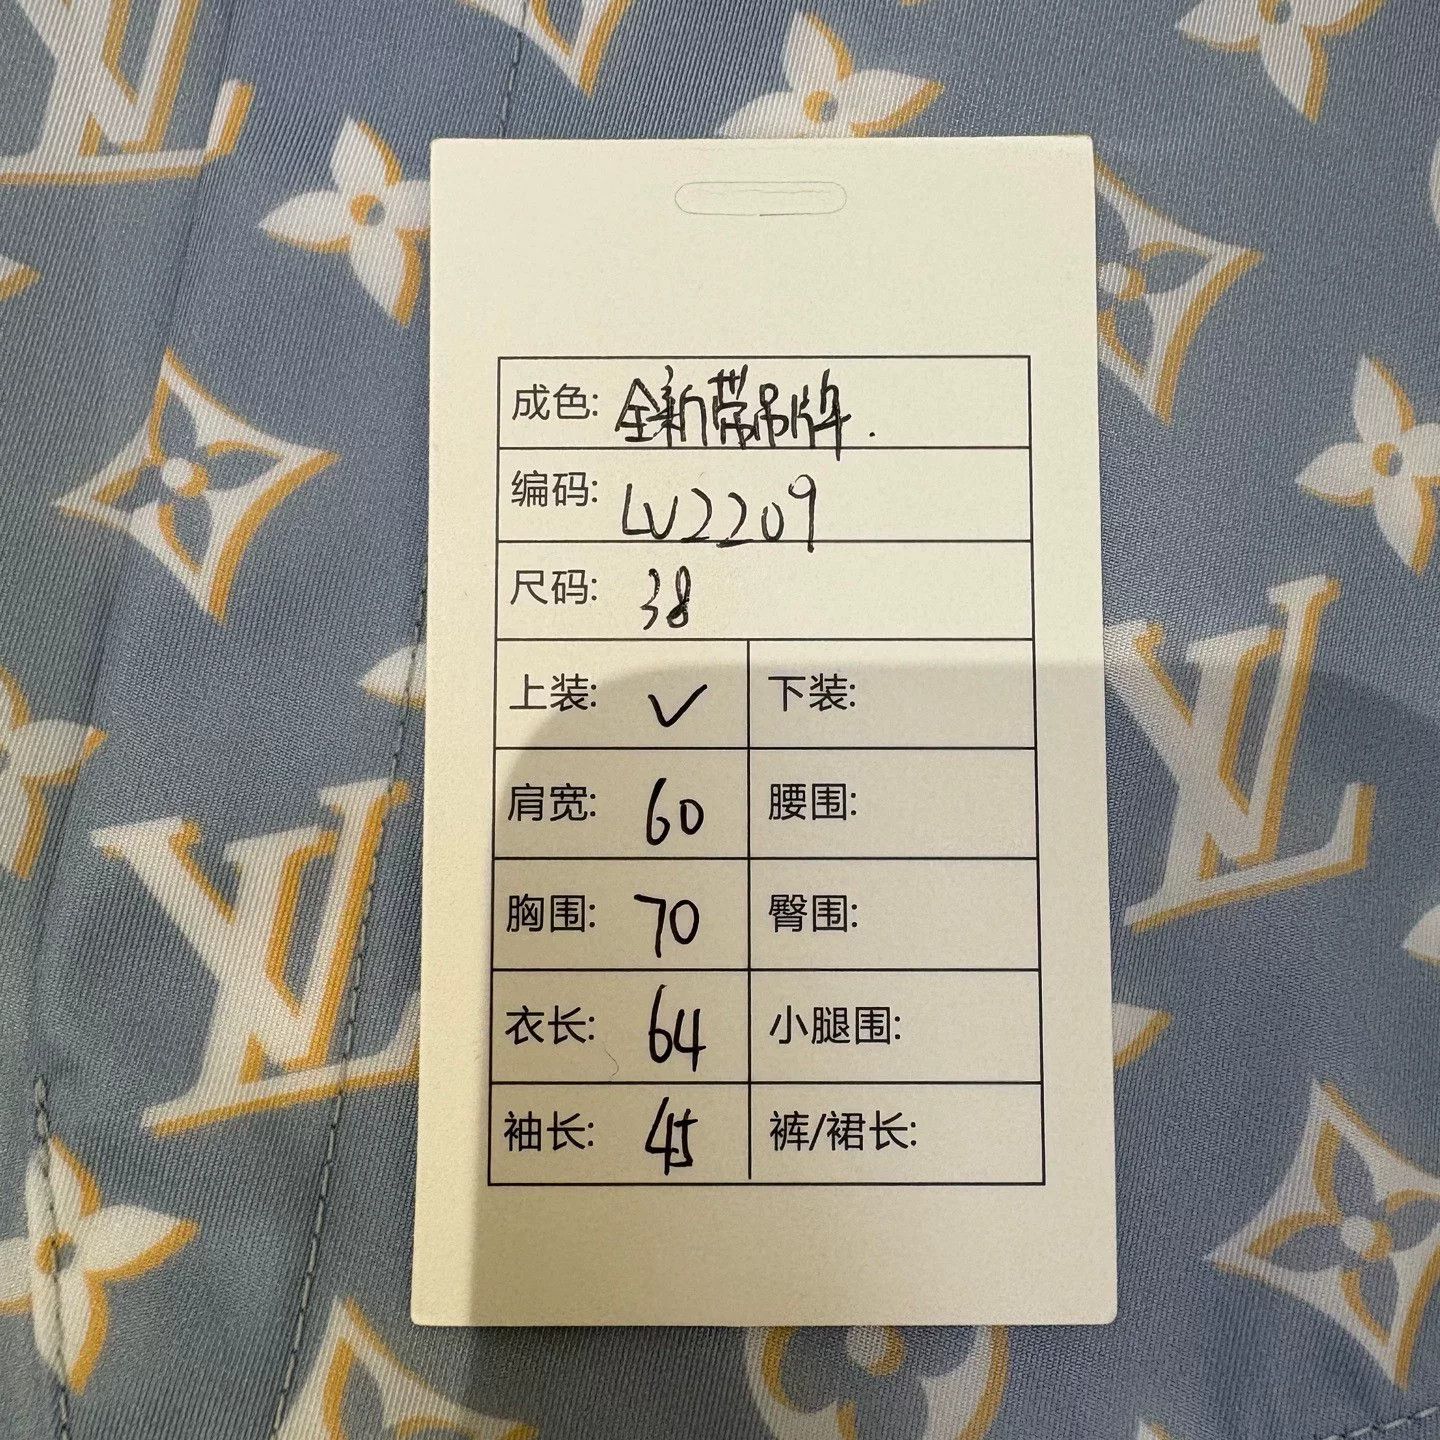 成色: 全新带吊牌.
编码: LV2209
尺码: 38
上装: ✓ 下装:
肩宽: 60 腰围:
胸围: 70 臀围:
衣长: 64 小腿围:
袖长: 45 裤/裙长: